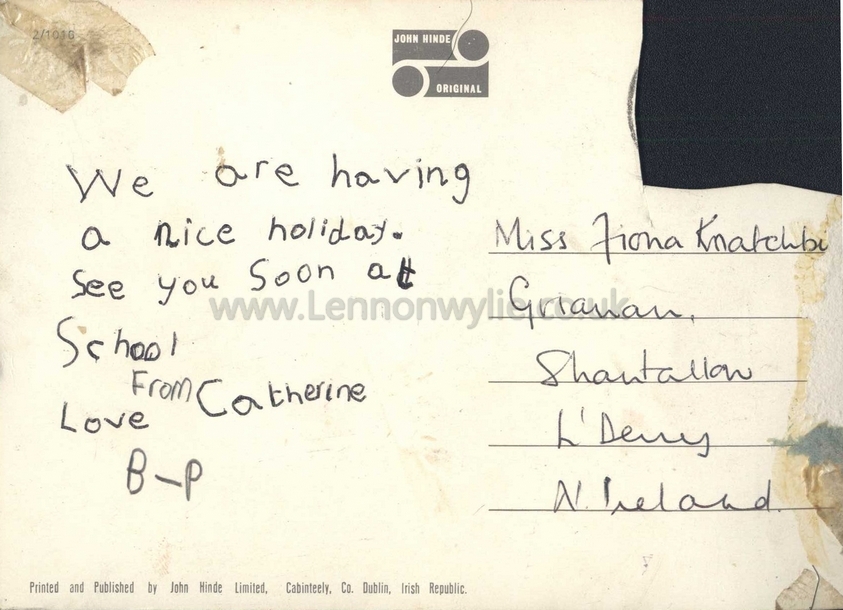 2/1016
JOHN HINDE
ORIGINAL
We are having
a nice holiday.
See you Soon at
School
From Catherine
Love
B-P
Miss Fiona Knatchbu
Grianan,
Shantallow
L'Derry
N. Ireland.
www.Lennonwylie.co.uk
Printed and Published by John Hinde Limited, Cabinteely, Co. Dublin, Irish Republic.